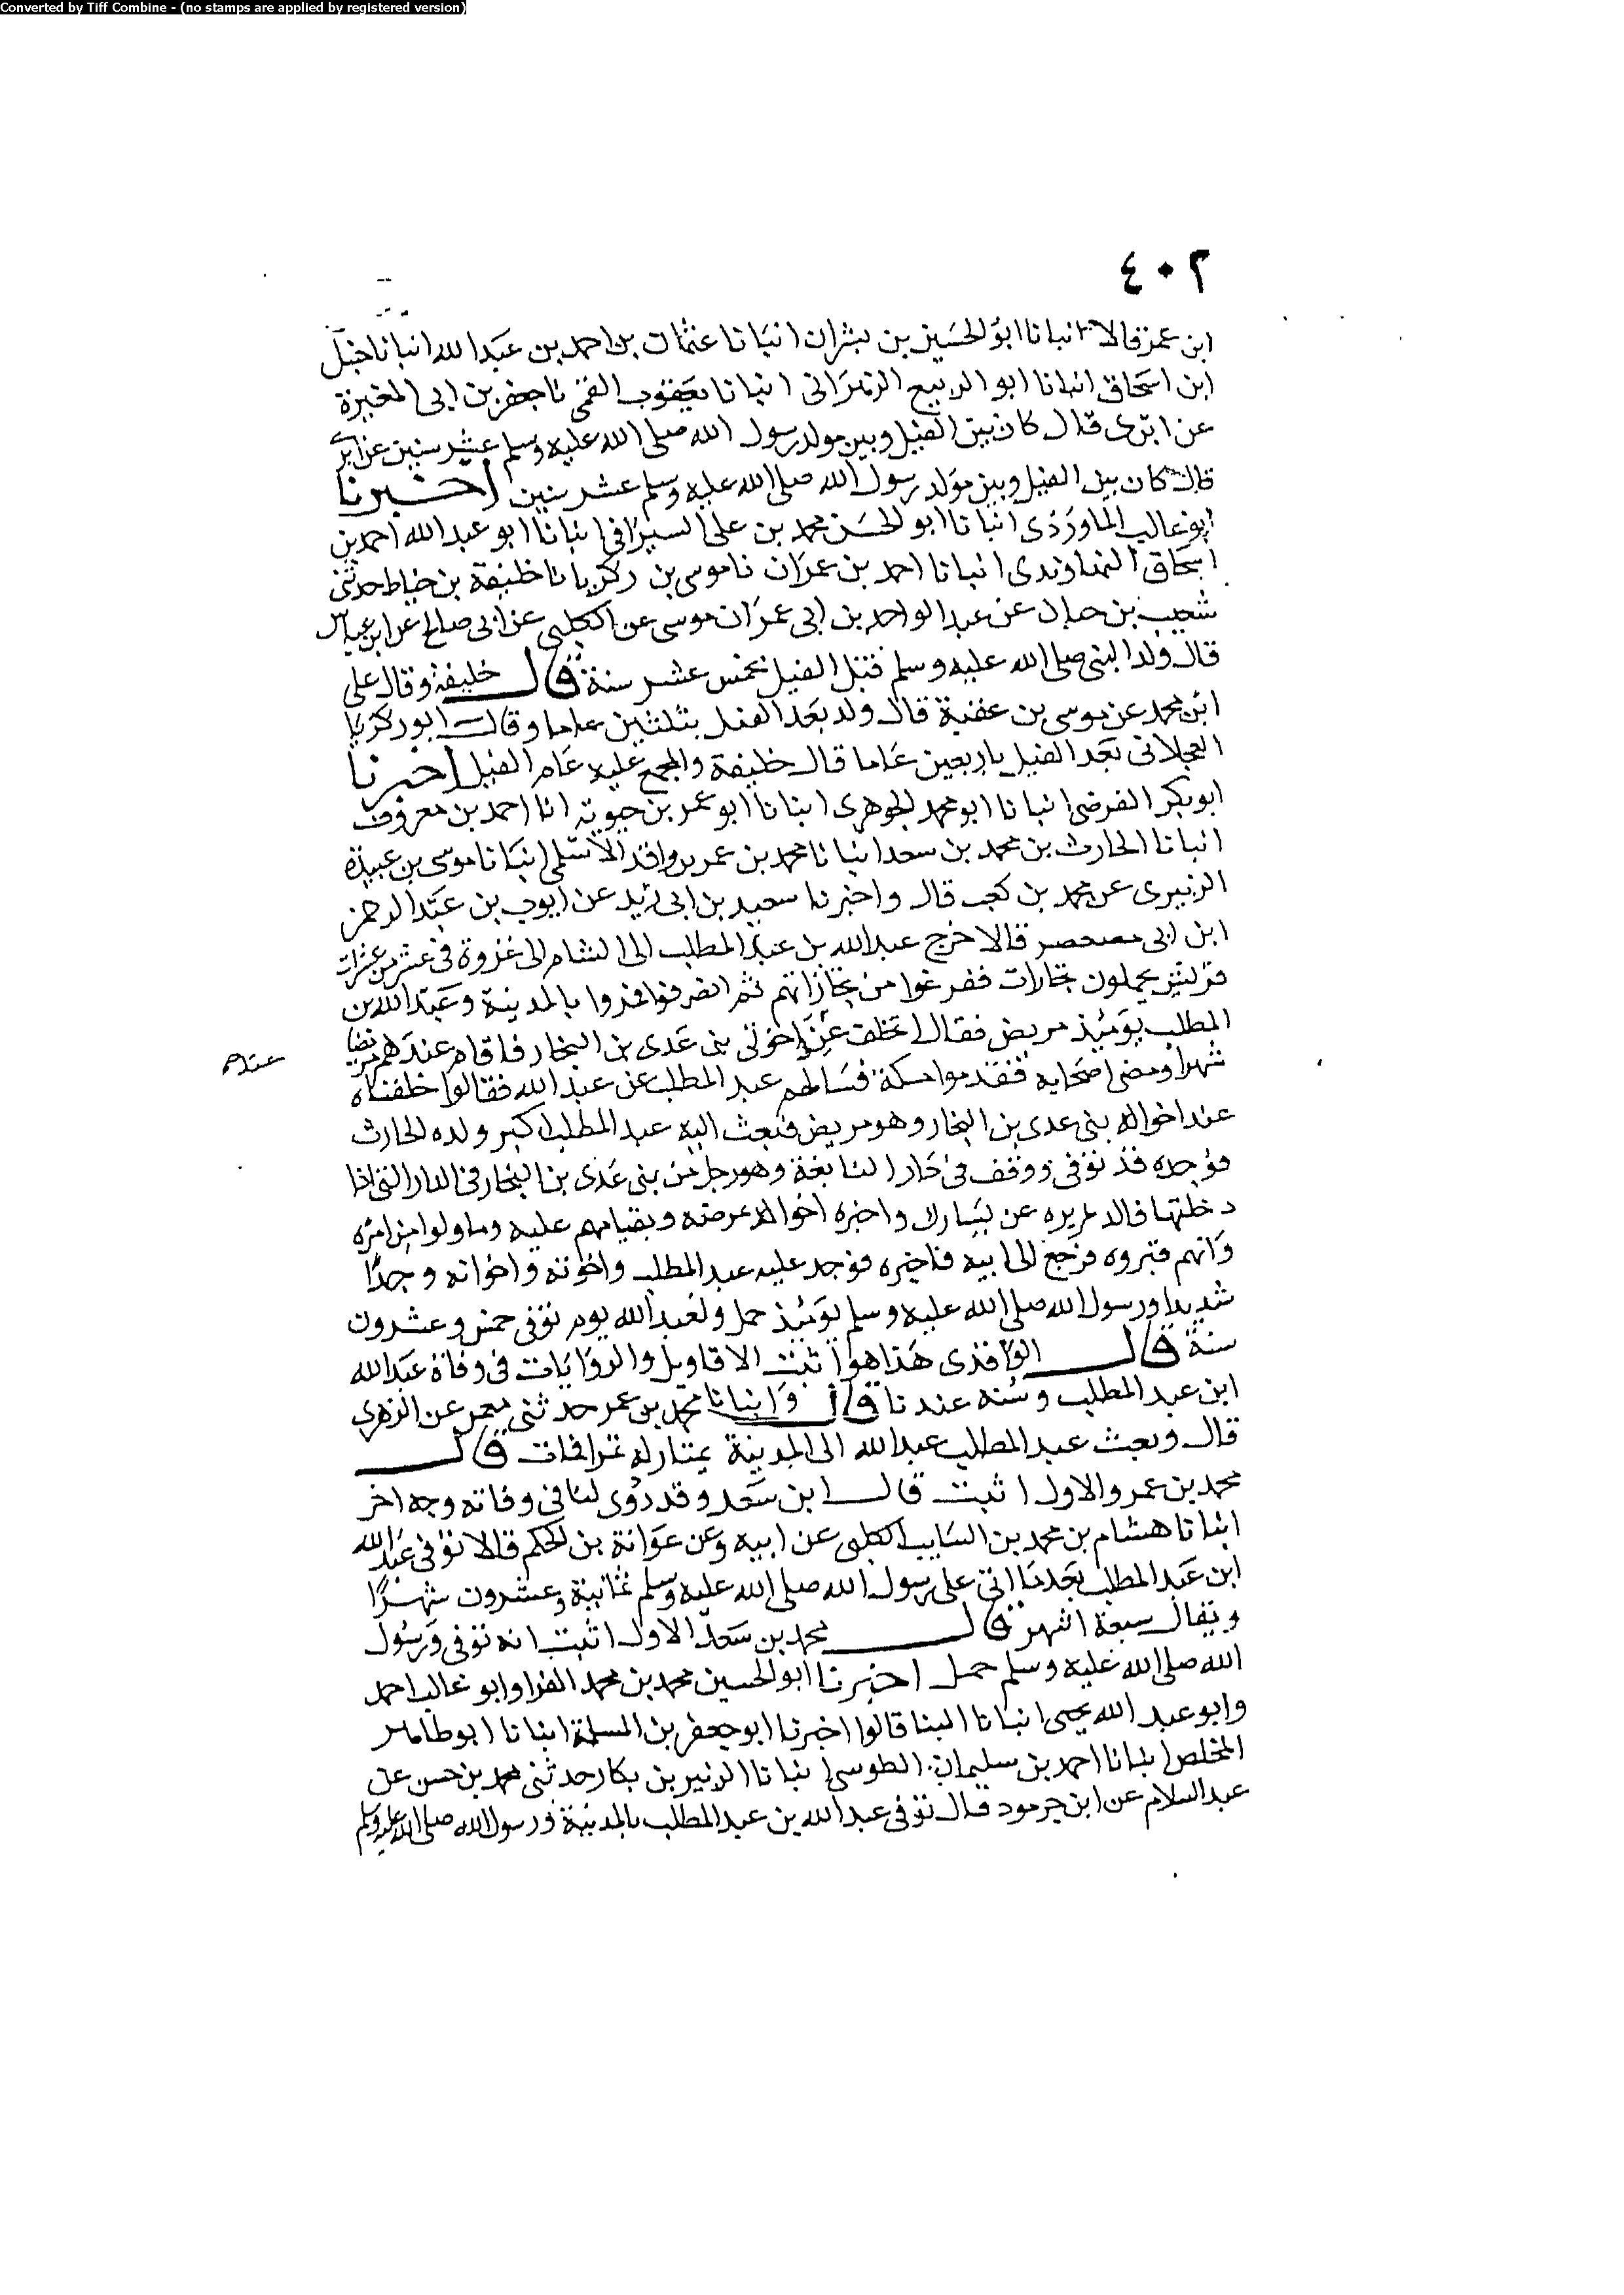 Converted by Tiff Combine - (no stamps are applied by registered version)
٤٠٢
ابن عمر قالا انبانا ابو الحسين بن بشران انبانا عثمان بن احمد بن عبد الله انبانا حنبل
ابن اسحاق انبانا ابو الربيع الزهراني انبانا يعقوب القمى نا جعفر بن ابى المغيرة
عن ابزى قال كان بين الفيل وبين مولد رسول الله صلى الله عليه وسلم عشر سنين عن ابزى
قال كان بين الفيل وبين مولد رسول الله صلى الله عليه وسلم عشر سنين اخبرنا
ابو غالب الماوردى انبانا ابو الحسن محمد بن على السيرافى انبانا ابو عبد الله احمد بن
اسحاق النهاوندى انبانا احمد بن عمران نا موسى بن زكريا نا خليفة بن خياط حدثنى
شعيب بن حبان عن عبد الواحد بن ابى عمران موسى عن الكلبى عن ابى صالح عن ابن عباس
قال ولد النبى صلى الله عليه وسلم قبل الفيل بخمس عشر سنة قال خليفة وقال على
ابن محمد عن موسى بن عقبة قال ولد بعد الفيل بثلثين عاما وقال ابو زكريا
العجلانى بعد الفيل باربعين عاما قال خليفة والمجمع عليه عام الفيل اخبرنا
ابو بكر الفرضى انبانا ابو محمد الجوهرى انبانا ابو عمر بن حيوية انا احمد بن معروف
انبانا الحارث بن محمد بن سعد انبانا محمد بن عمر بن واقد الاسلمى انبانا موسى بن عبيدة
الزبيرى عن محمد بن كعب قال واخبرنا سعيد بن ابى زيد عن ايوب بن عبد الرحمن
ابن ابى صعصعة قالا خرج عبد الله بن عبد المطلب الى الشام الى غزوة فى عير من عيرات
قريش يحملون تجارات ففرغوا من تجاراتهم ثم انصرفوا فمروا بالمدينة وعبد الله بن
المطلب يومئذ مريض فقال اتخلف عند اخوالى بنى عدى بن النجار فاقام عندهم مريضا
عندهم
شهرا ومضى اصحابه فقدموا مكة فسالهم عبد المطلب عن عبد الله فقالوا خلفناه
عند اخواله بنى عدى بن النجار وهو مريض فبعث اليه عبد المطلب اكبر ولده الحارث
فوجده قد توفى ووقف فى دار النابغة وهو رجل من بنى عدى بن النجار فى الدار التى اذا
دخلتها فالدويرة عن يسارك واخبره اخواله بمرضه وبقيامهم عليه وما ولوا من امره
وانهم قبروه فرجع الى ابيه فاخبره فوجد عليه عبد المطلب واخوته واخواته وجدا
شديدا ورسول الله صلى الله عليه وسلم يومئذ حمل ولعبد الله يوم توفى خمس وعشرون
سنة قال الواقدى هذا هو اثبت الاقاويل والروايات فى وفاة عبد الله
ابن عبد المطلب وسنه عندنا قال وانبانا محمد بن عمر حدثنى معمر عن الزهرى
قال وبعث عبد المطلب عبد الله الى المدينة يمتار له تمرا فمات قال
محمد بن عمر والاول اثبت قال ابن سعد وقد روى لنا فى وفاته وجه اخر
انبانا هشام بن محمد بن السايب الكلبى عن ابيه وعن عوانة بن الحكم قالا توفى عبد الله
ابن عبد المطلب بعد ما اتى على رسول الله صلى الله عليه وسلم ثمانية وعشرون شهرا
ويقال سبعة اشهر قال محمد بن سعد الاول اثبت انه توفى ورسول
الله صلى الله عليه وسلم حمل اخبرنا ابو الحسين محمد بن محمد الفرا وابو غالب احمد
وابو عبد الله يحيى انبانا البنا قالوا اخبرنا ابو جعفر بن المسلمة انبانا ابو طاهر
المخلص انبانا احمد بن سليمان الطوسى انبانا الزبير بن بكار حدثنى محمد بن حسن عن
عبد السلام عن ابن خربوذ قال توفى عبد الله بن عبد المطلب بالمدينة ورسول الله صلى الله عليه وسلم